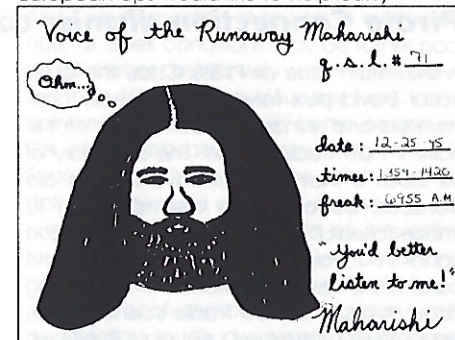 Voice of the Runaway Maharishi
q. s. l. # 71
Ohm...
date: 12-25-95
times: 1354-1426
freak: 6955 A.M
"You'd better
listen to me!"
Maharishi